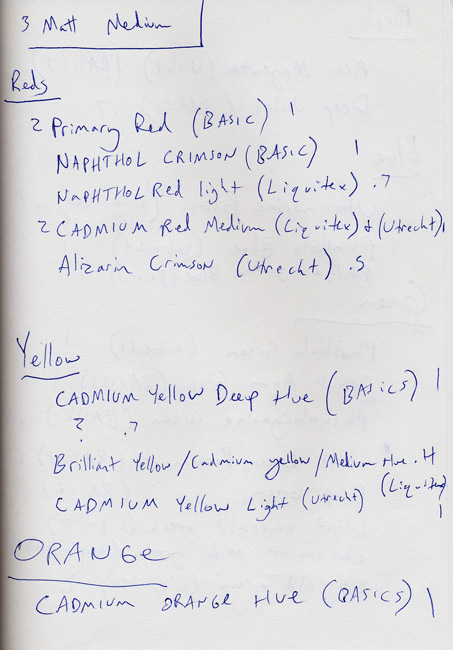 3 Matt Medium
Reds
2 Primary Red (BASIC) 1
NAPHTHOL CRIMSON (BASIC) 1
NAPHTHOL Red light (Liquitex) .7
2 CADMIUM Red Medium (Liquitex) + (Utrecht) 1
Alizarin Crimson (Utrecht) .5
Yellow
CADMIUM Yellow Deep Hue (BASICS) 1
? .7
Brilliant Yellow/Cadmium yellow/Medium Hue .4
(Liquitex)
CADMIUM Yellow Light (Utrecht) 1
ORANGE
CADMIUM ORANGE HUE (BASICS) 1